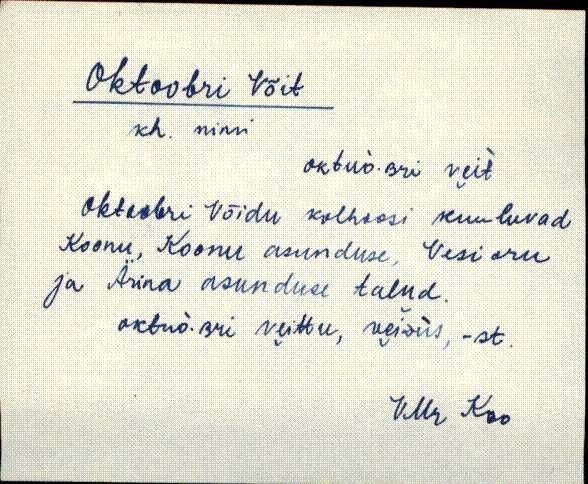 Oktoobri Võit
kh. nimi
oktuò.ʙri vẹit̀
Oktoobri Võidu kolhoosi kuuluvad
Koonu, Koonu asunduse, Vesioru
ja Ärina asunduse talud.
oktuò.ʙri vẹittu, vẹiᴅùs, -st.
VMr Koo